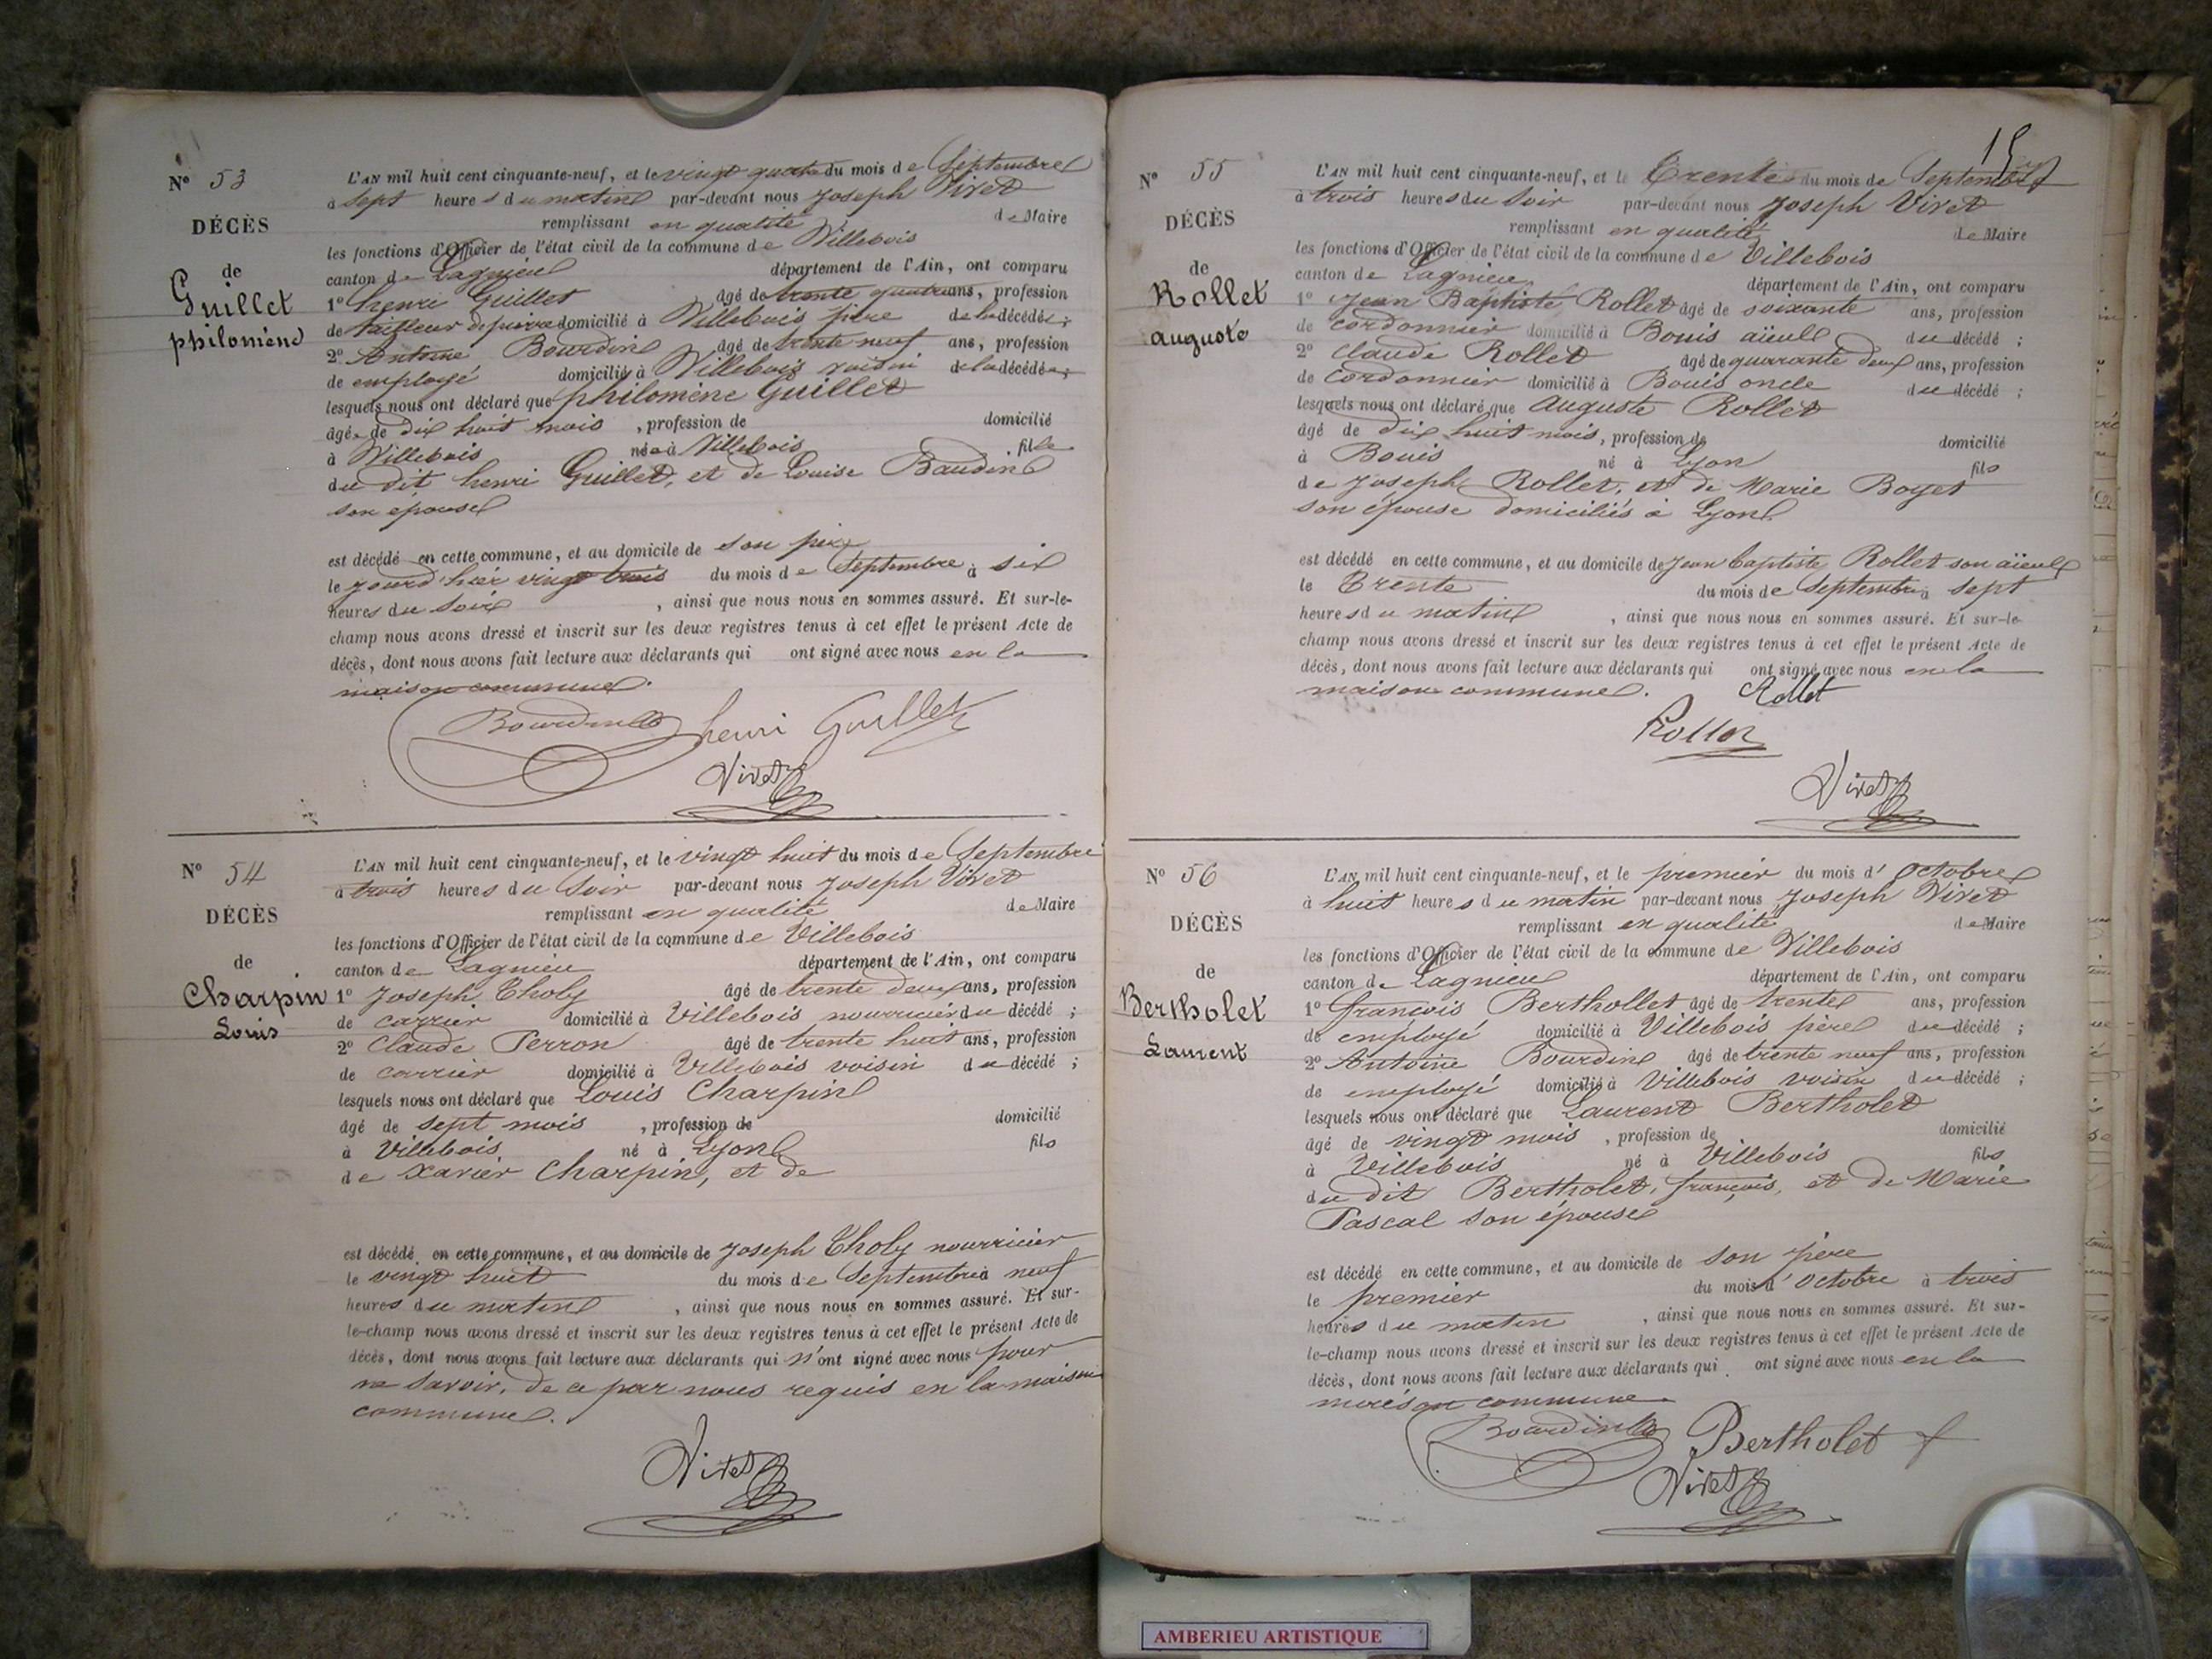 N° 53
DÉCÈS
de
Guillet
philomène
L'AN mil huit cent cinquante-neuf, et le vingt quatre du mois de Septembre
à sept heures du matin par-devant nous Joseph Vivet
remplissant en qualité de Maire
les fonctions d'Officier de l'état civil de la commune de Villebois
canton de Lagnieu département de l'Ain, ont comparu
1° henri Guillet âgé de trente quatre ans, profession
de tailleur de pierre domicilié à Villebois père de la décédée ;
2° Antoine Bourdin âgé de trente neuf ans, profession
de employé domicilié à Villebois voisin de la décédée ;
lesquels nous ont déclaré que philomène Guillet
âgée de dix huit mois , profession de domicilié
à Villebois née à Villebois fille
du dit henri Guillet, et de Louise Baudin
son épouse
est décédé en cette commune, et au domicile de son père
le jourd'hier vingt trois du mois de Septembre à six
heures du soir , ainsi que nous nous en sommes assuré. Et sur-le-
champ nous avons dressé et inscrit sur les deux registres tenus à cet effet le présent Acte de
décès, dont nous avons fait lecture aux déclarants qui ont signé avec nous en la
maison commune.
Bourdin henri Guillet
Vivet
N° 54
DÉCÈS
de
Charpin
Louis
L'AN mil huit cent cinquante-neuf, et le vingt huit du mois de Septembre
à trois heures du soir par-devant nous Joseph Vivet
remplissant en qualité de Maire
les fonctions d'Officier de l'état civil de la commune de Villebois
canton de Lagnieu département de l'Ain, ont comparu
1° Joseph Tholy âgé de trente deux ans, profession
de carrier domicilié à Villebois nourricier du décédé ;
2° Claude Perron âgé de trente huit ans, profession
de carrier domicilié à Villebois voisin du décédé ;
lesquels nous ont déclaré que Louis Charpin
âgé de sept mois , profession de domicilié
à Villebois né à Lyon fils
de Xavier Charpin, et de
est décédé en cette commune, et au domicile de Joseph Tholy nourricier
le vingt huit du mois de Septembre à neuf
heures du matin , ainsi que nous nous en sommes assuré. Et sur-
le-champ nous avons dressé et inscrit sur les deux registres tenus à cet effet le présent Acte de
décès, dont nous avons fait lecture aux déclarants qui n'ont signé avec nous pour
ne savoir, de ce par nous requis en la maison
commune.
Vivet
15
N° 55
DÉCÈS
de
Rollet
auguste
L'AN mil huit cent cinquante-neuf, et le Trente du mois de Septembre
à trois heures du soir par-devant nous Joseph Vivet
remplissant en qualité de Maire
les fonctions d'Officier de l'état civil de la commune de Villebois
canton de Lagnieu département de l'Ain, ont comparu
1° Jean Baptiste Rollet âgé de soixante ans, profession
de cordonnier domicilié à Bouis aïeul du décédé ;
2° Claude Rollet âgé de quarante deux ans, profession
de cordonnier domicilié à Bouis oncle du décédé ;
lesquels nous ont déclaré que Auguste Rollet
âgé de dix huit mois, profession de domicilié
à Bouis né à Lyon fils
de Joseph Rollet, et de Marie Boyet
son épouse domiciliés à Lyon
est décédé en cette commune, et au domicile de Jean Baptiste Rollet son aïeul
le Trente du mois de Septembre à sept
heures du matin , ainsi que nous nous en sommes assuré. Et sur-le-
champ nous avons dressé et inscrit sur les deux registres tenus à cet effet le présent Acte de
décès, dont nous avons fait lecture aux déclarants qui ont signé avec nous en la
maison commune. Rollet
Rollet
Vivet
N° 56
DÉCÈS
de
Bertholet
Laurent
L'AN mil huit cent cinquante-neuf, et le premier du mois d'Octobre
à huit heures du matin par-devant nous Joseph Vivet
remplissant en qualité de Maire
les fonctions d'Officier de l'état civil de la commune de Villebois
canton de Lagnieu département de l'Ain, ont comparu
1° François Berthollet âgé de trente ans, profession
de employé domicilié à Villebois père du décédé ;
2° Antoine Bourdin âgé de trente neuf ans, profession
de employé domicilié à Villebois voisin du décédé ;
lesquels nous ont déclaré que Laurent Bertholet
âgé de vingt mois , profession de domicilié
à Villebois né à Villebois fils
du dit Bertholet, françois, et de Marie
Pascal son épouse
est décédé en cette commune, et au domicile de son père
le premier du mois d'Octobre à trois
heures du matin , ainsi que nous nous en sommes assuré. Et sur-
le-champ nous avons dressé et inscrit sur les deux registres tenus à cet effet le présent Acte de
décès, dont nous avons fait lecture aux déclarants qui ont signé avec nous en la
maison commune
Bourdin Bertholet f
Vivet
AMBERIEU ARTISTIQUE